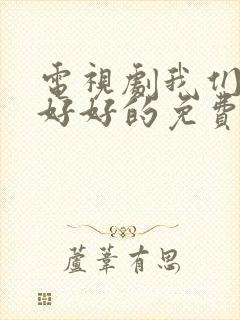 電視劇我们
好好的免費
蘆葦有思